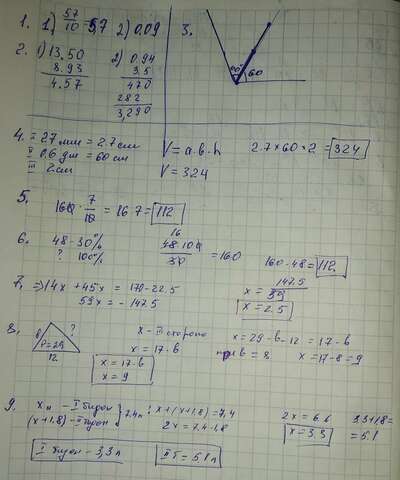 1. 1) 57/10 = 5,7 2) 0.09 3.
60
2. 1) 13,50 2) 0.94
8.93 3.5
4.57 470
282
3,290
4. I 27 мм = 2.7 см V = a·b·h 2.7×60×2 = 324
II 0,6 дм = 60 см
III 2 см V = 324
5. 160 · 7/10 = 16·7 = 112
6. 48 - 30% 16
? 100% 48·100/30 = 160 160-48 = 112
7. => 14x + 45x = 170-22.5 x = 147.5/59
59x = -147.5 x = 2.5
8. b ? x - III сторона x = 29-b-12 = 17-b
P=29 x = 17-b при b = 8 x = 17-8 = 9
12 x = 17-b
x = 9
9. x л - I бидон } 7.4л; x+(x+1.8) = 7,4 2x = 6.6 3.3+1,8 =
(x+1.8) - II бидон 2x = 7.4-1,8 x = 3.3 = 5.1
I бидон - 3,3 л II б = 5,1 л